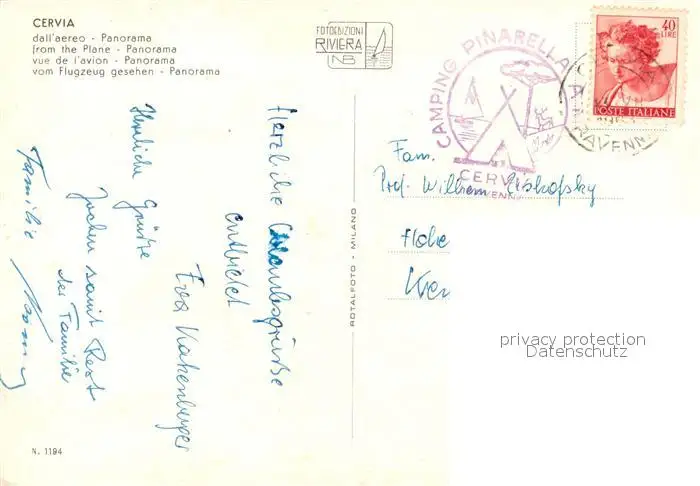 CERVIA
dall'aereo - Panorama
from the Plane - Panorama
vue de l'avion - Panorama
vom Flugzeug gesehen - Panorama
FOTOEDIZIONI
RIVIERA
NB
CAMPING PINARELLA
CERVIA
40
LIRE
POSTE ITALIANE
RAVENNA
Herzliche Urlaubsgrüsse
entbietet
Eva
Herzliche Grüsse
Jochen samt Rest
der Familie
Familie
ROTALFOTO - MILANO
Fam.
Prof. Wilhelm
Hohe
privacy protection
Datenschutz
N. 1194